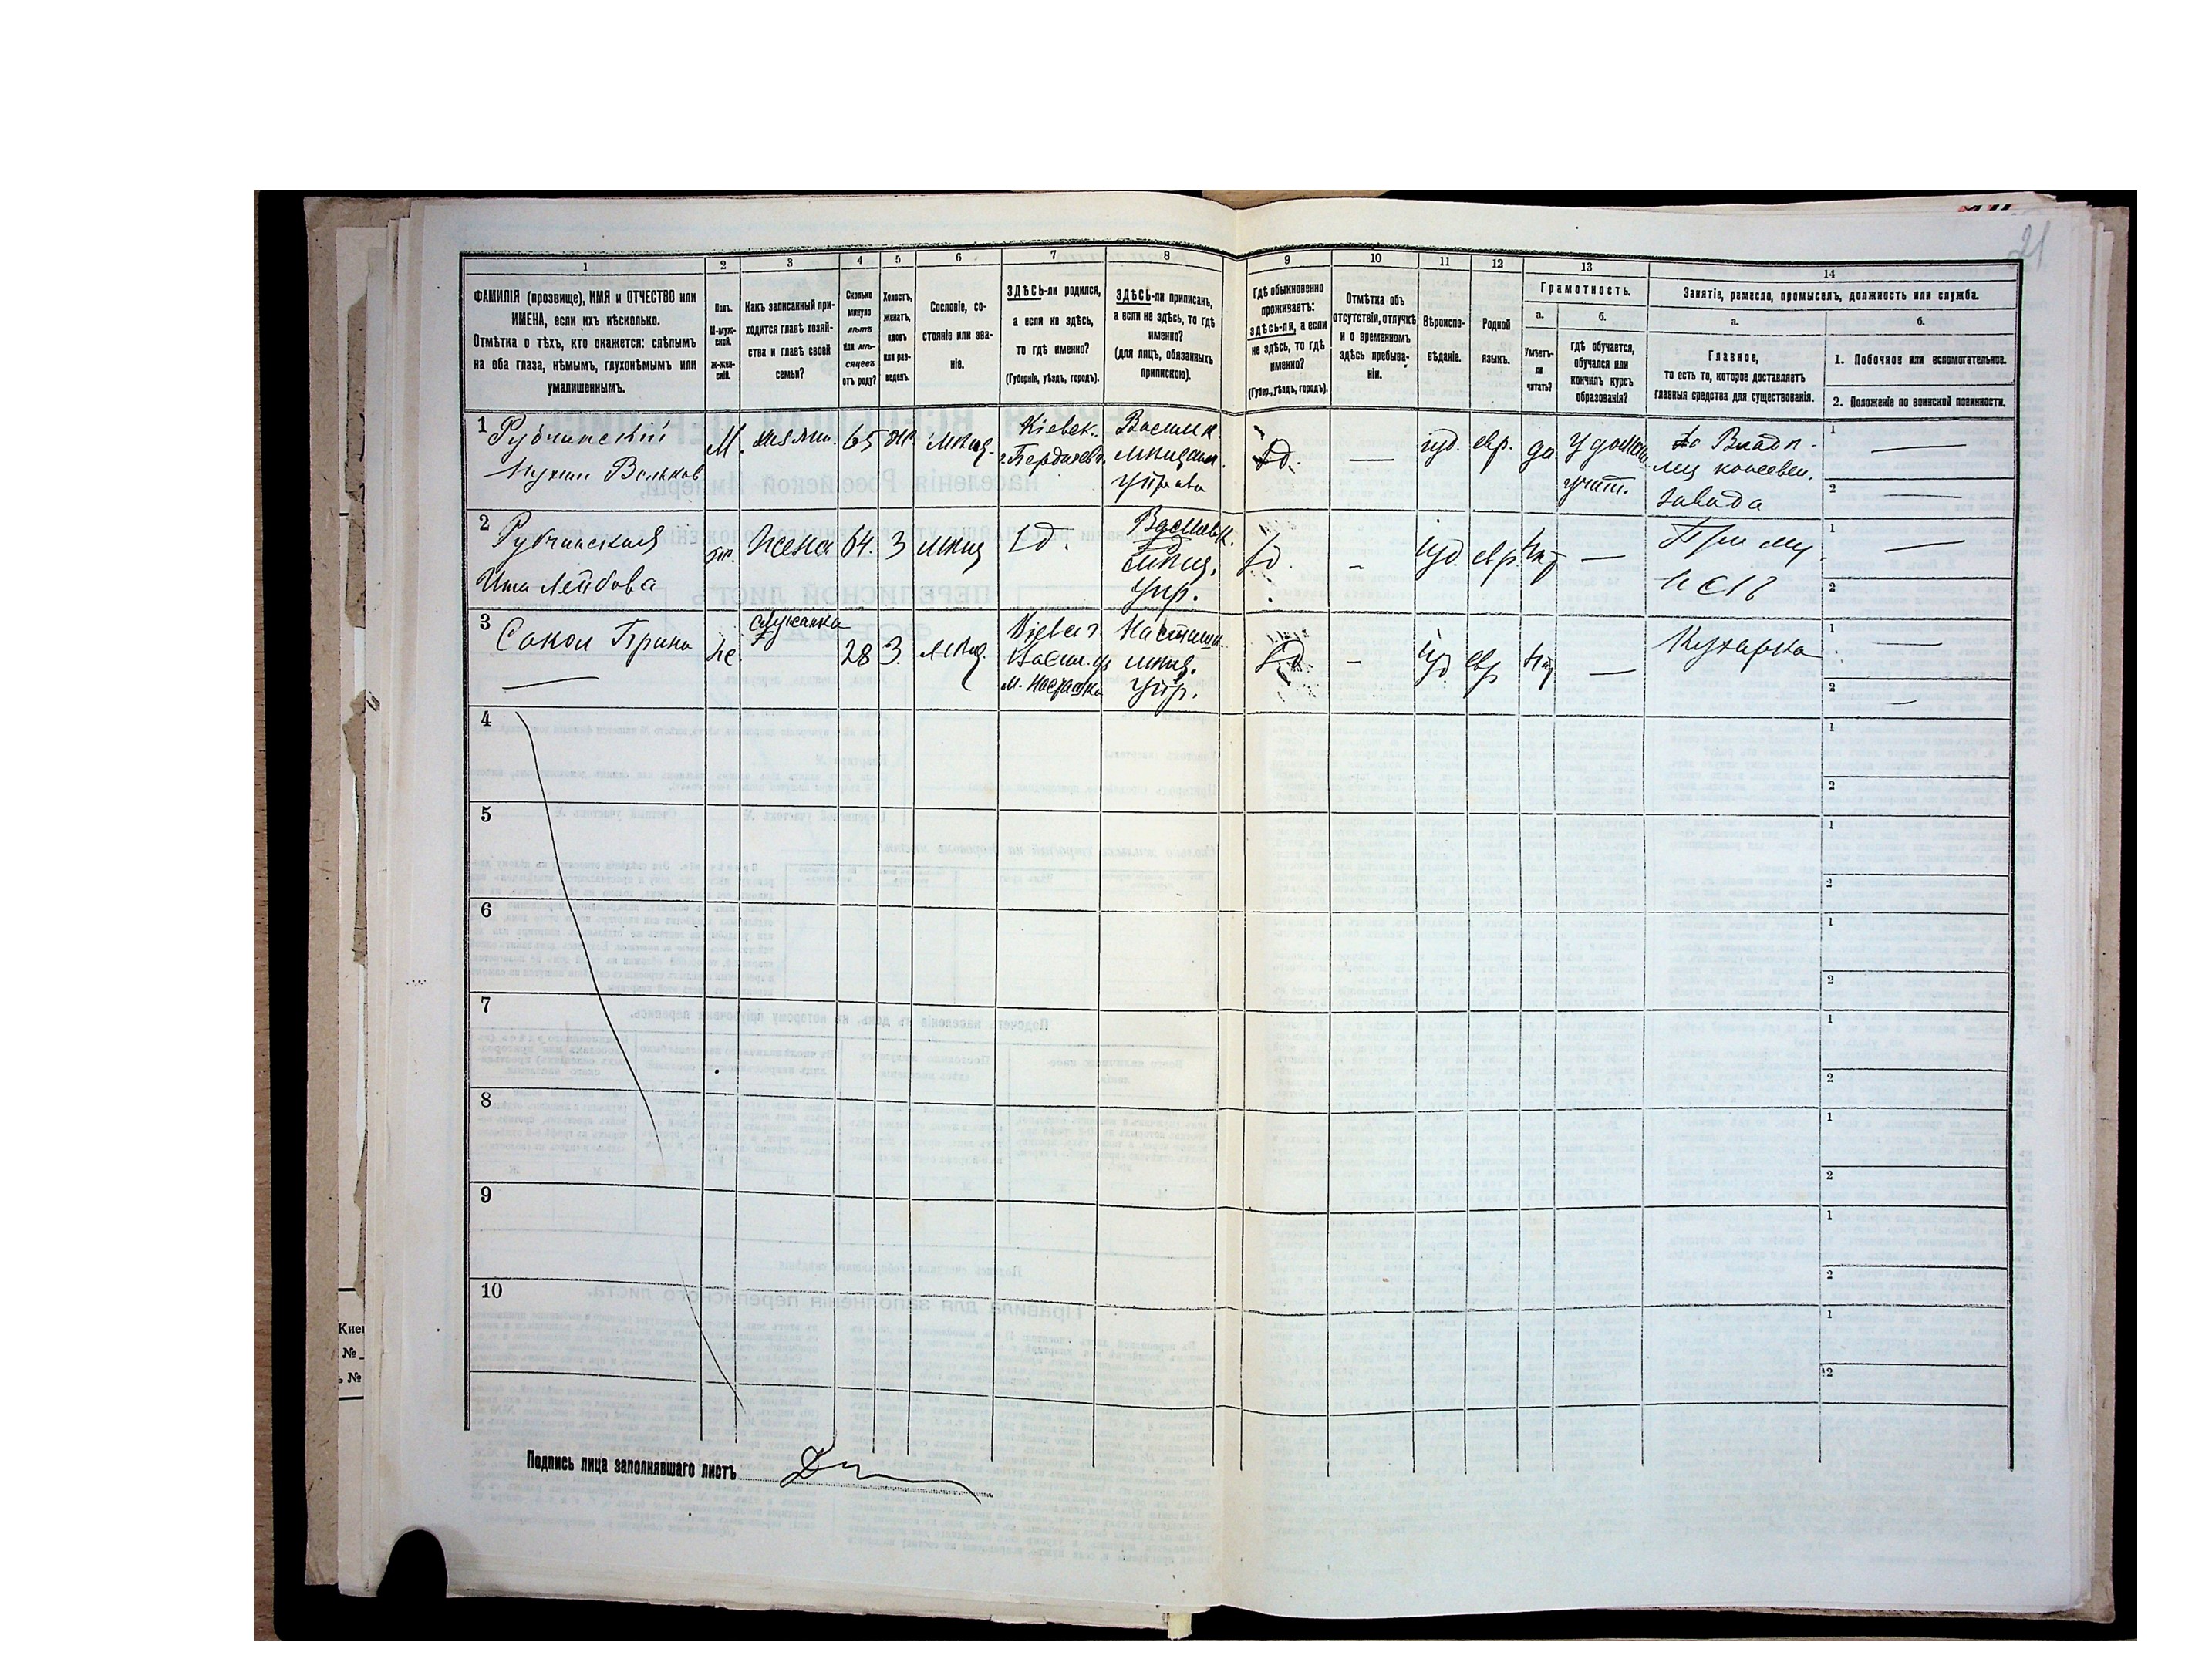 21
1 2 3 4 5 6 7 8 9 10 11 12 13 14
ФАМИЛІЯ (прозвище), ИМЯ и ОТЧЕСТВО или
ИМЕНА, если ихъ нѣсколько.
Отмѣтка о тѣхъ, кто окажется: слѣпымъ
на оба глаза, нѣмымъ, глухонѣмымъ или
умалишеннымъ.
Полъ.
М-муж-
ской.
ж-жен-
скій.
Какъ записанный при-
ходится главѣ хозяй-
ства и главѣ своей
семьи?
Сколько
минуло
лѣтъ
или мѣ-
сяцевъ
отъ роду?
Холостъ,
женатъ,
вдовъ
или раз-
веденъ.
Сословіе, со-
стояніе или зва-
ніе.
ЗДѢСЬ-ли родился,
а если не здѣсь,
то гдѣ именно?
(Губернія, уѣздъ, городъ).
ЗДѢСЬ-ли приписанъ,
а если не здѣсь, то гдѣ
именно?
(для лицъ, обязанныхъ
припискою).
Гдѣ обыкновенно
проживаетъ:
здѣсь-ли, а если
не здѣсь, то гдѣ
именно?
(Губер., уѣздъ, городъ).
Отмѣтка объ
отсутствіи, отлучкѣ
и о временномъ
здѣсь пребыва-
ніи.
Вѣроиспо-
вѣданіе.
Родной
языкъ.
Грамотность.
а.
Умѣетъ-
ли
читать?
б.
гдѣ обучается,
обучался или
кончилъ курсъ
образованія?
Занятіе, ремесло, промыселъ, должность или служба.
а.
Главное,
то есть то, которое доставляетъ
главныя средства для существованія.
б.
1. Побочное или вспомогательное.
2. Положеніе по воинской повинности.
1 Рубчинскій
Вольков
М.
хозяин.
65
ж.
мѣщ.
Кіевск.
г. Бердичевъ
Василк.
мѣщан.
управа
зд.
—
іуд.
евр.
да
У домаш.
учит.
Владѣ-
лец кожевен.
завода
1 —
2 —
2 Рубчинская
Лейбова
ж.
Жена
64.
З
мѣщ
зд.
Васильк.
мѣщ.
упр.
зд.
-
іуд.
евр.
нѣт
—
При му-
жѣ
1 —
2
3 Сокол Брана
—
ж
служанка
28
З.
мѣщ.
Кіевск.
Васил. у
м. Насташка
Насташк.
мѣщ.
упр.
зд
-
іуд
евр
нѣт
—
Кухарка
1 —
2 —
4
1
2
5
1
2
6
1
2
7
1
2
8
1
2
9
1
2
10
1
2
Подпись лица заполнявшаго листъ
Кие
№
ъ №